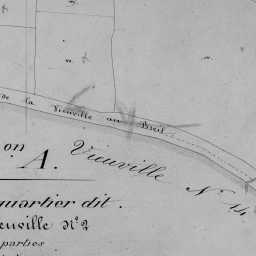 de la Vieuville au Breil
on
A.
Vieuville
N° 14
quartier dit.
euville N° 2
parties